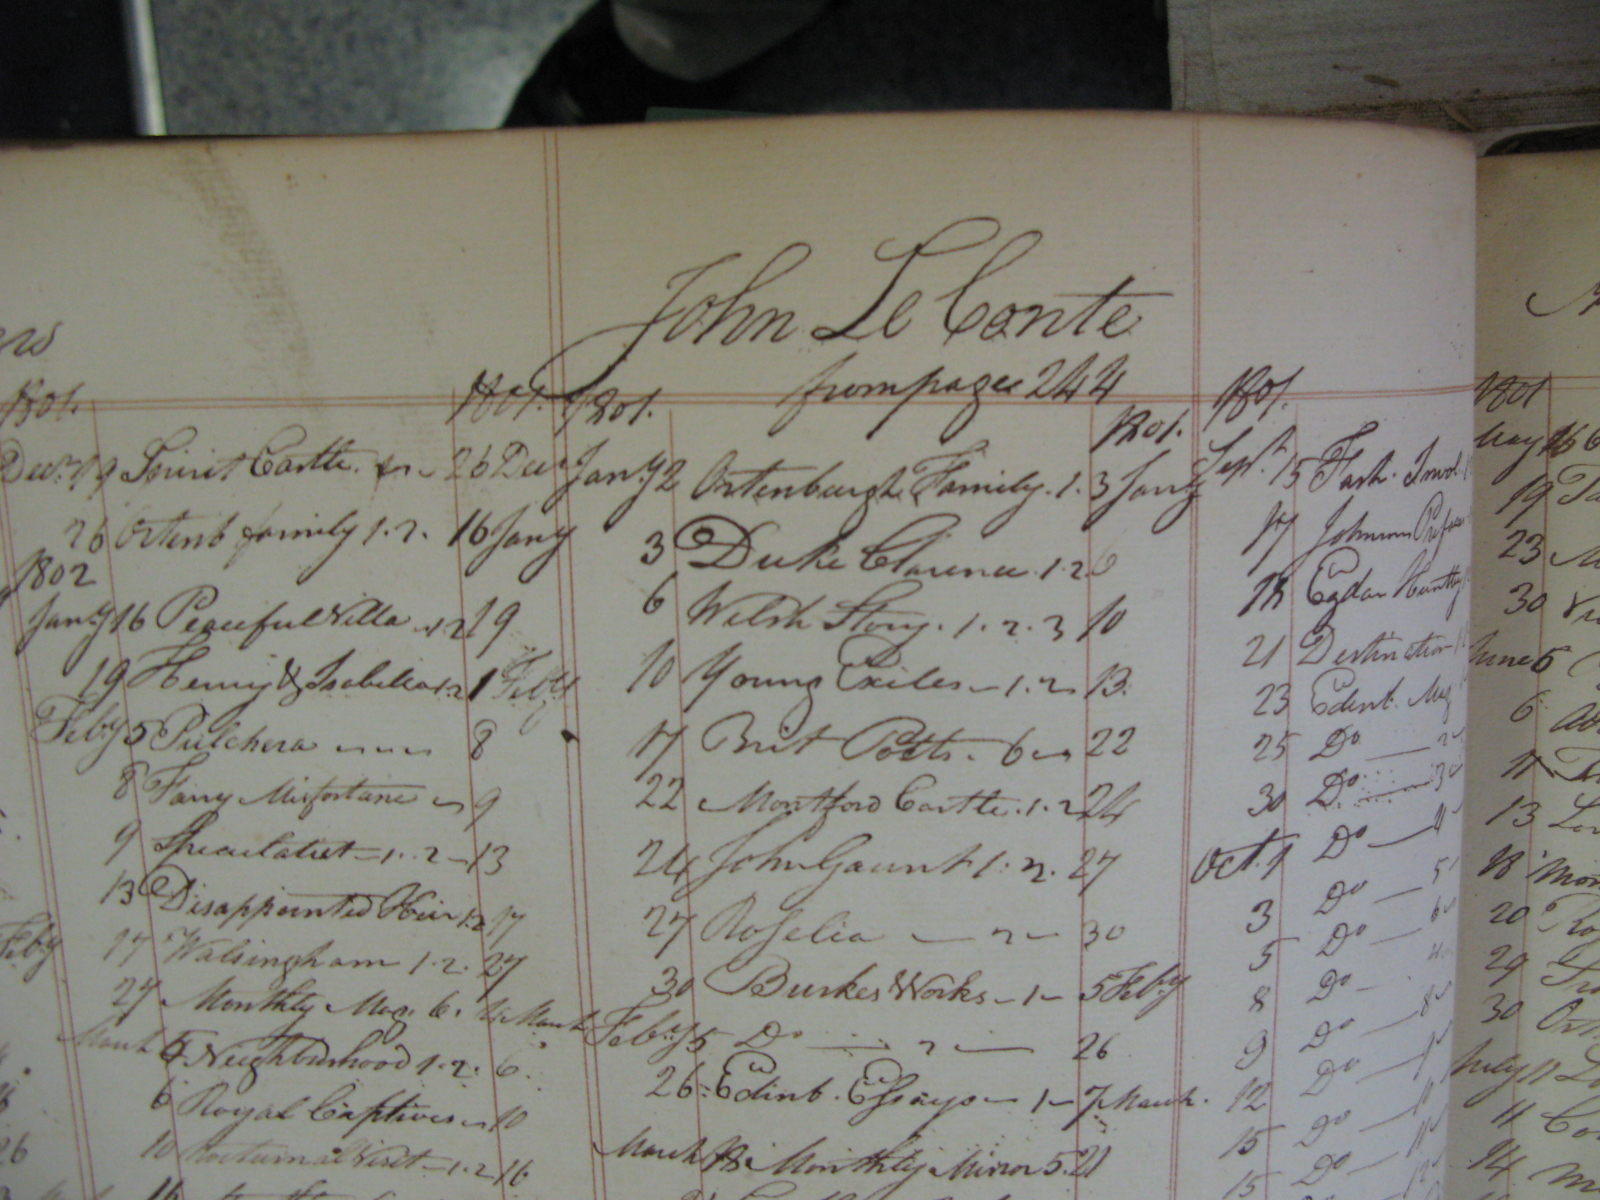 John Le Conte
from page 244
1801.
1801.
Decr 19 Spirit Castle. 26 Decr
26 Ortenb family 1.2. 16 Jany
1802
Jany 16 Peaceful Villa 1.2 19
19 Henry & Isabella 1.2 1 Feby
Feby 5 Pulchera 8
8 Fairy Misfortune 9
9 Speculatist 1. 2 13
13 Disappointed Heir 1.2 17
17 Walsingham 1.2. 27
27 Monthly Mag. 6. 4 March
March 5 Neighbourhood 1.2. 6
6 Royal Captives 10
10 Nocturnal Visit 1.2 16
1801.
1801.
Jany 2 Ortenburgh Family. 1. 3 Jany
3 Duke Clarence. 1.2 6
6 Welsh Story. 1. 2. 3 10
10 Young Exiles 1. 2 13.
17 Brit Poets. 6 22
22 Montford Castle. 1.2 24
24 John Gaunt 1. 2. 27
27 Roselia 2 30
30 Burkes Works 1 5 Feby
Feby 5 Do 2 26
26 Edinb. Essays 1 7 March.
March 18 Monthly Mirror 5. 21
1801.
Sept. 15 Fash. Invol
17 Johnson
18 Egdar Huntly
21 Destination
23 Edinb. Mag
25 Do 2
30 Do 3
Oct. 1 Do 4
3 Do 5
5 Do 6
8 Do
9 Do 8
12 Do 9
15 Do 10
15 Do 11
1801
May 16
19
23
30
June 5
6
11
13
18
20
29
30
July 11
11
14